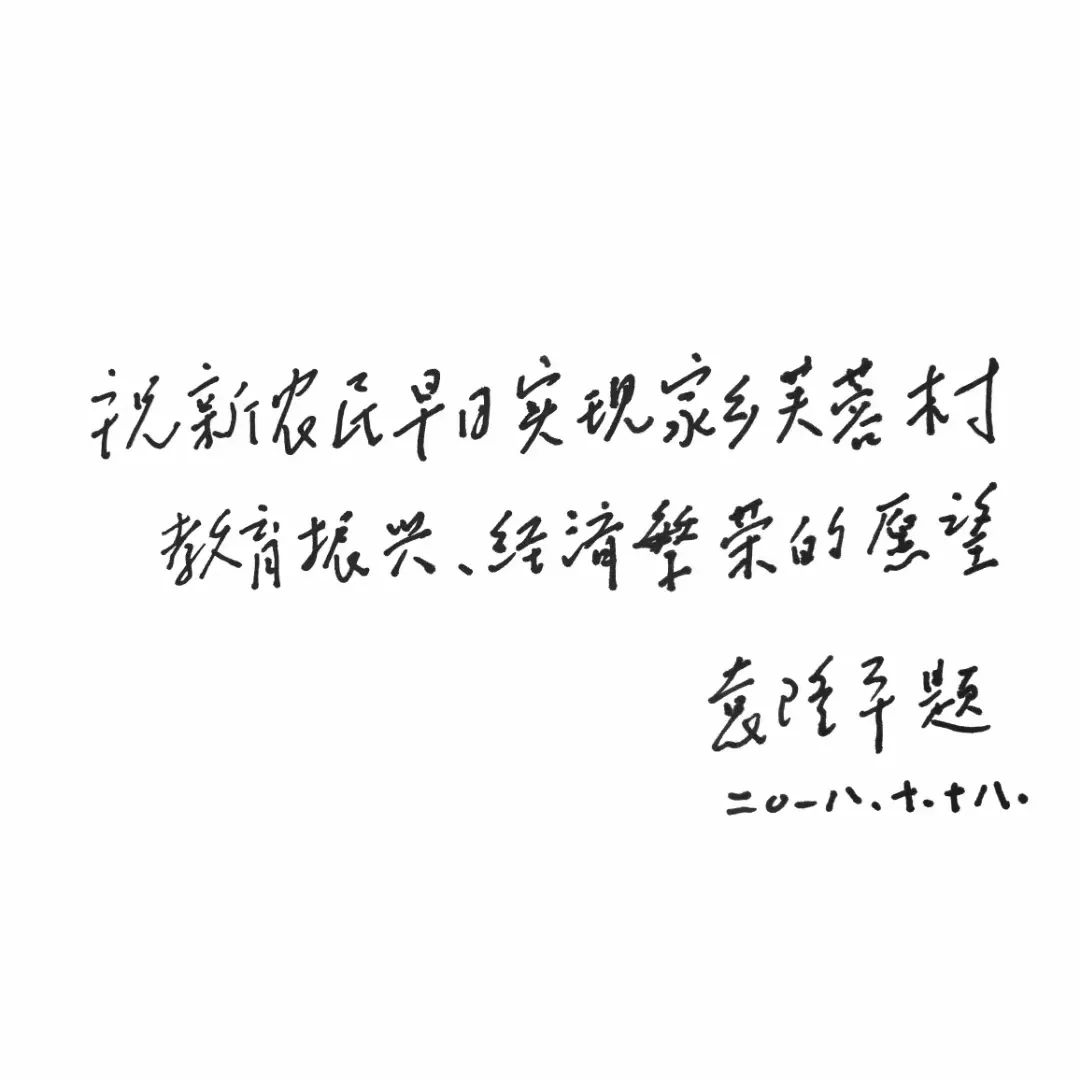 祝新农民早日实现家乡芙蓉村
教育振兴、经济繁荣的愿望
袁隆平题
二〇一八、十、十八.